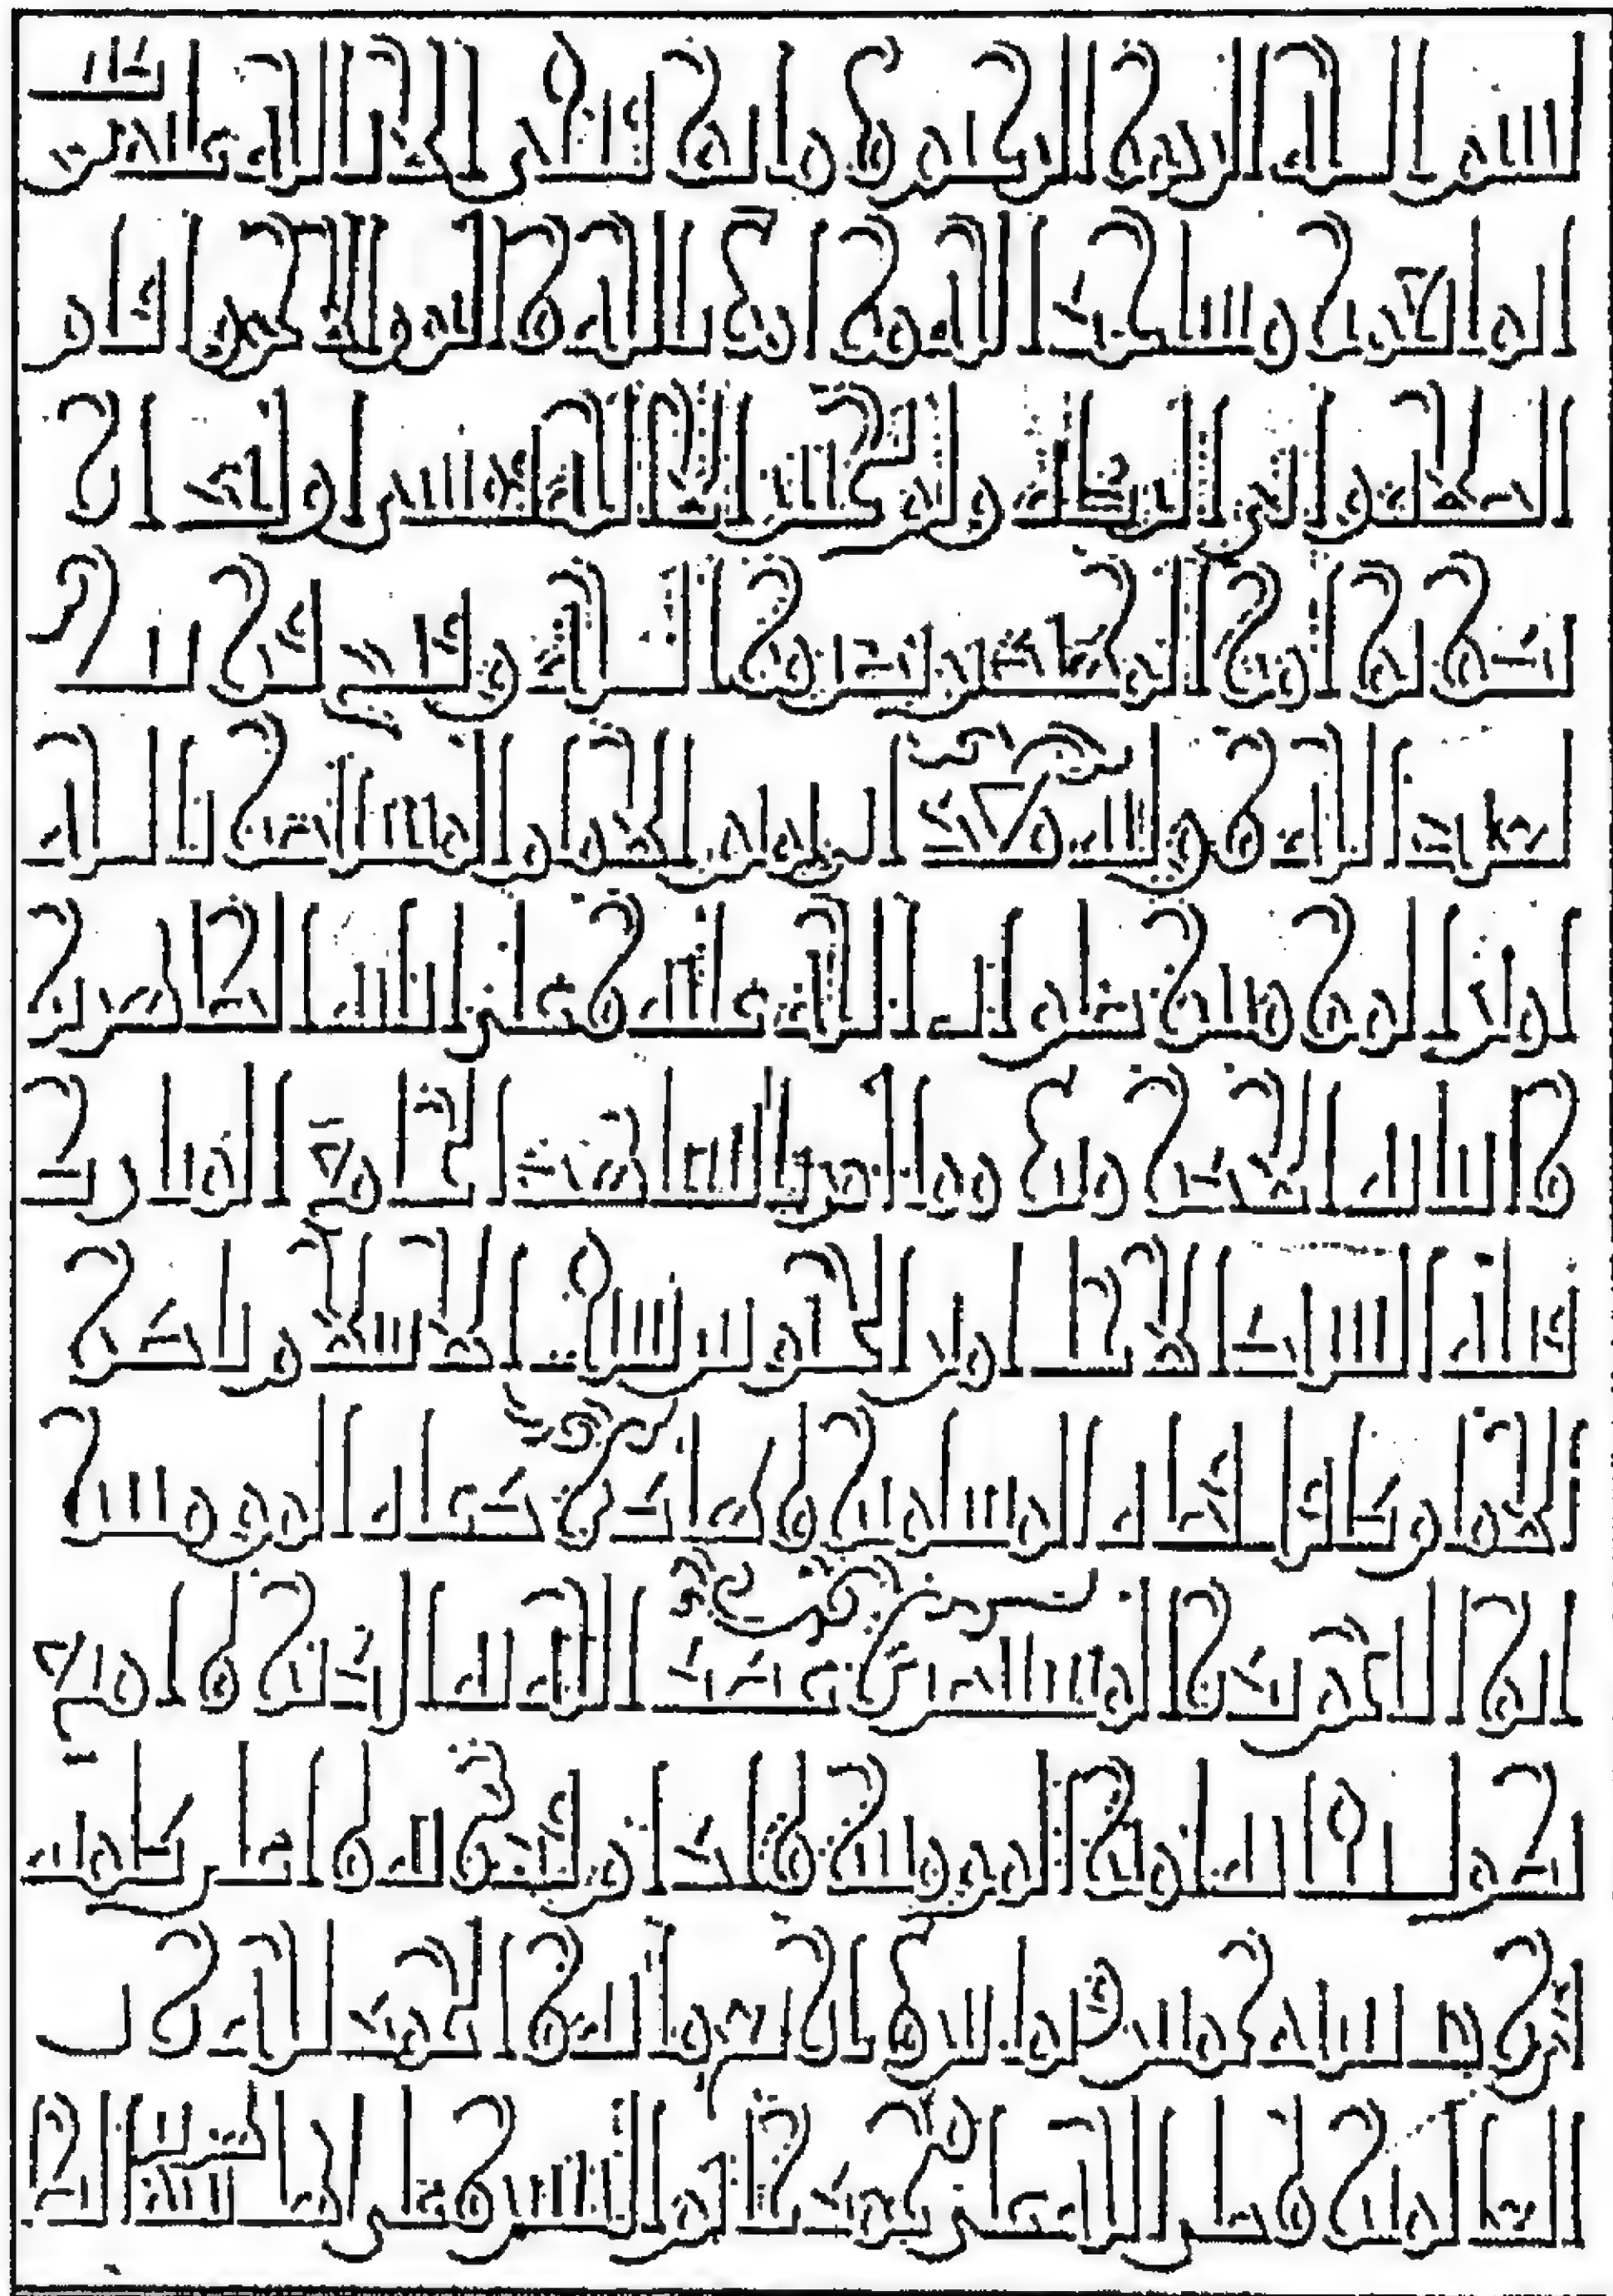 بسم الله الرحمن الرحيم وما توفيقي الا بالله عليه توكلت
انما يعمر مساجد الله من امن بالله واليوم الاخر واقام
الصلاة واتى الزكاة ولم يخش الا الله فعسى اولئك ان
يكونوا من المهتدين نصر من الله وفتح قريب
لعبد الله ووليه معد ابي تميم الامام المستنصر بالله
امير المؤمنين صلوات الله عليه وعلى ابائه الطاهرين
وابنائه الاكرمين مما امر بانشاء هذا الجامع المبارك
فتاه السيد الاجل امير الجيوش سيف الاسلام ناصر
الامام كافل قضاة المسلمين وهادي دعاة المؤمنين
ابو النجم بدر المستنصري عضد الله به الدين وامتع
بطول بقائه امير المؤمنين وادام قدرته واعلى كلمته
سنة خمس وثمانين واربع مائة الحمد لله رب
العالمين وصلى الله على محمد خاتم النبيين وعلى اهل بيته